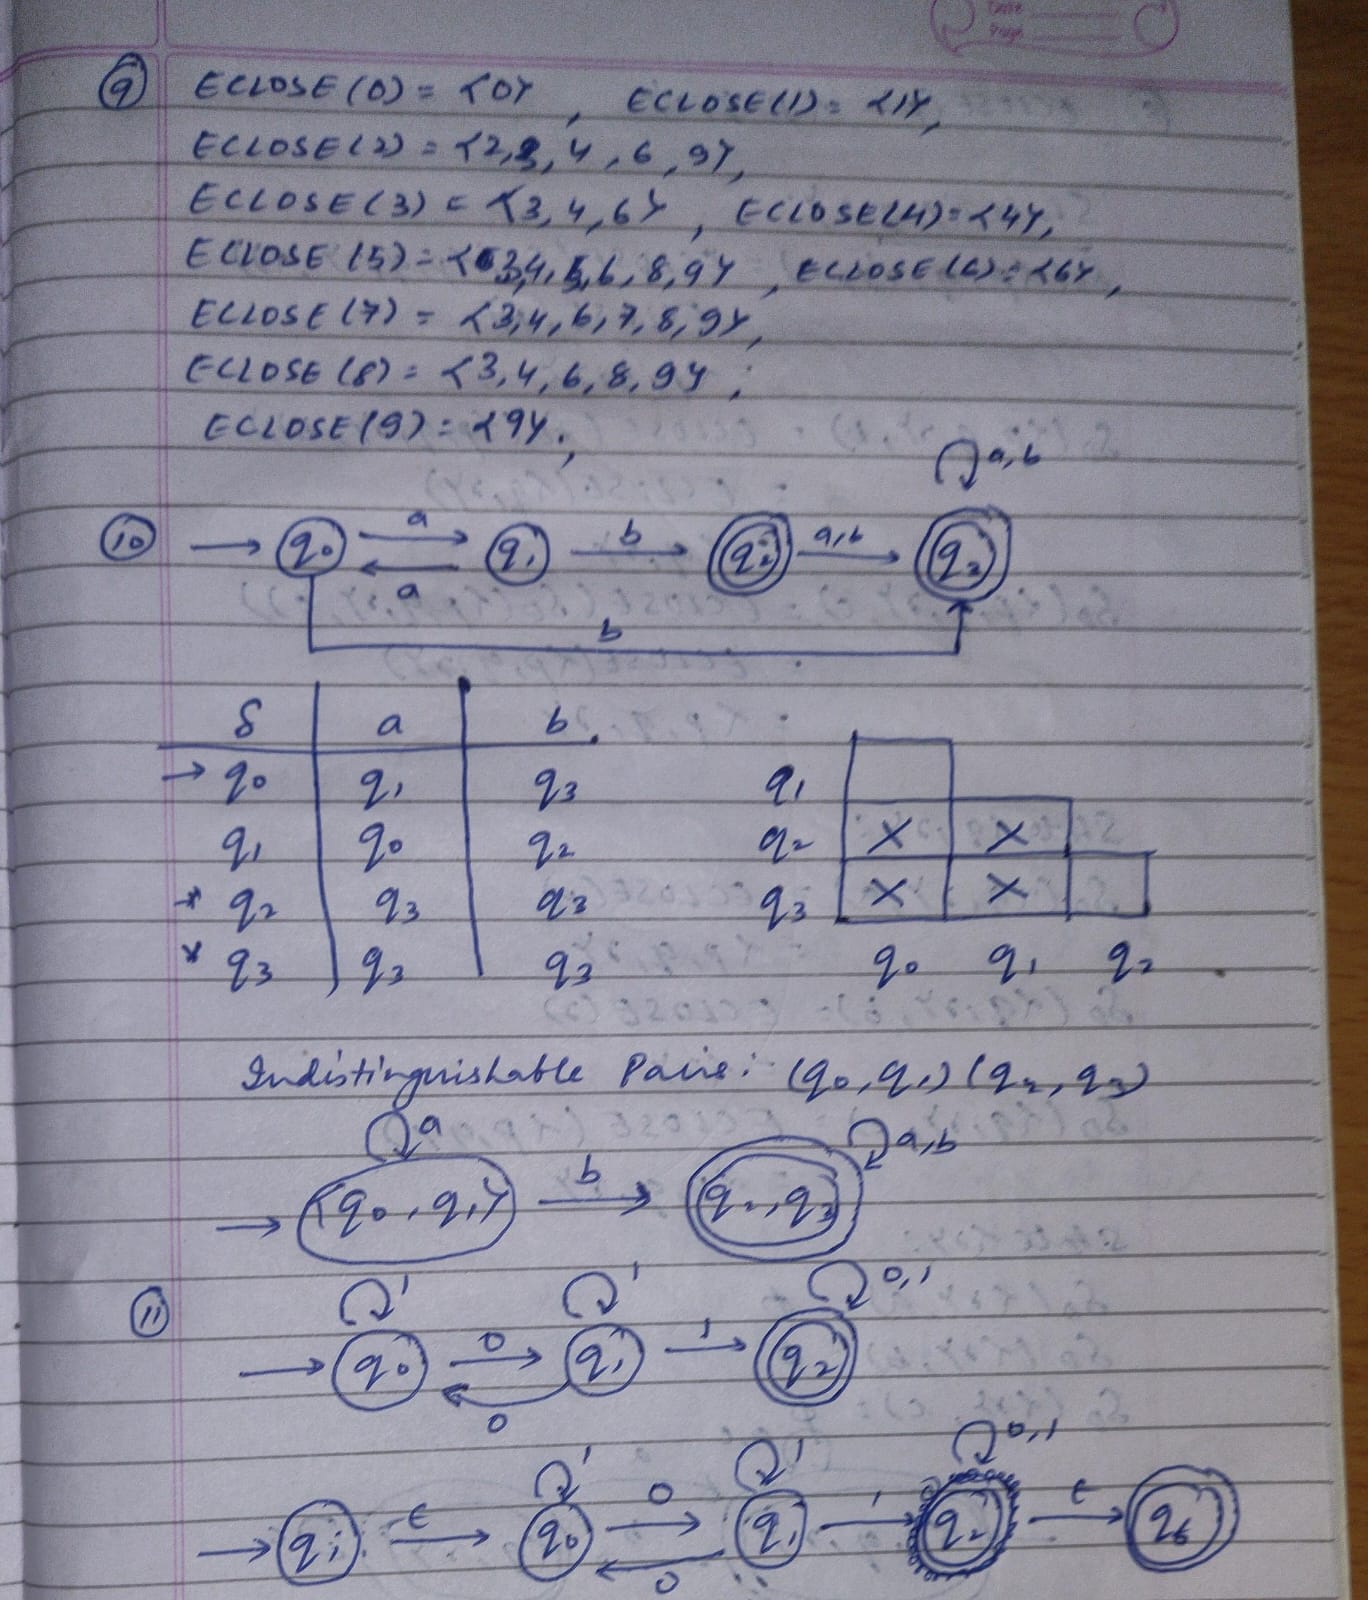 Date
Page
9 ECLOSE(0) = {0}, ECLOSE(1) = {1},
ECLOSE(2) = {2,3,4,6,9},
ECLOSE(3) = {3,4,6}, ECLOSE(4) = {4},
ECLOSE(5) = {3,4,5,6,8,9}, ECLOSE(6) = {6},
ECLOSE(7) = {3,4,6,7,8,9},
ECLOSE(8) = {3,4,6,8,9},
ECLOSE(9) = {9},
a,b
10 → q0 a q1 b q2 a,b q3
a
b
δ a b
→ q0 q1 q3
q1 q0 q2
* q2 q3 q3
* q3 q3 q3
q1
q2 X X
q3 X X
q0 q1 q2
Indistinguishable Pairs: (q0, q1) (q2, q3)
a a,b
→ {q0, q1} b q2, q3
11 1 1 0,1
→ q0 0 q1 1 q2
0
1 1 0,1
→ qi ε q0 0 q1 1 q2 ε qf
0